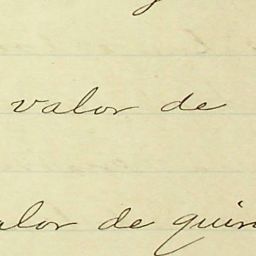 valor de
alor de quin